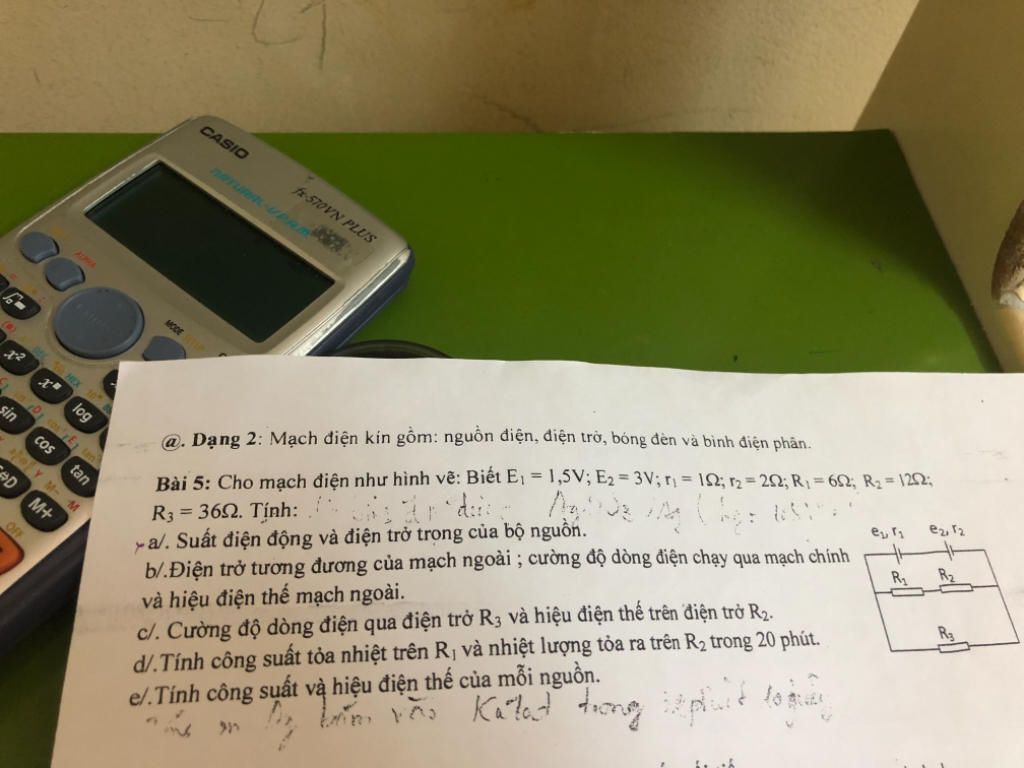 CASIO
fx-570VN PLUS
NATURAL-V.P.A.M.
ALPHA
MODE SETUP
x²
log
sin
cos
tan
S⇔D
M+
M-
OFF
@. Dạng 2: Mạch điện kín gồm: nguồn điện, điện trở, bóng đèn và bình điện phân.
Bài 5: Cho mạch điện như hình vẽ: Biết E₁ = 1,5V; E₂ = 3V; r₁ = 1Ω; r₂ = 2Ω; R₁ = 6Ω; R₂ = 12Ω;
R₃ = 36Ω. Tính:
a/. Suất điện động và điện trở trong của bộ nguồn.
b/.Điện trở tương đương của mạch ngoài ; cường độ dòng điện chạy qua mạch chính
và hiệu điện thế mạch ngoài.
c/. Cường độ dòng điện qua điện trở R₃ và hiệu điện thế trên điện trở R₂.
d/.Tính công suất tỏa nhiệt trên R₁ và nhiệt lượng tỏa ra trên R₂ trong 20 phút.
e/.Tính công suất và hiệu điện thế của mỗi nguồn.
e₁, r₁ e₂, r₂
R₁ R₂
R₃
Katot trong